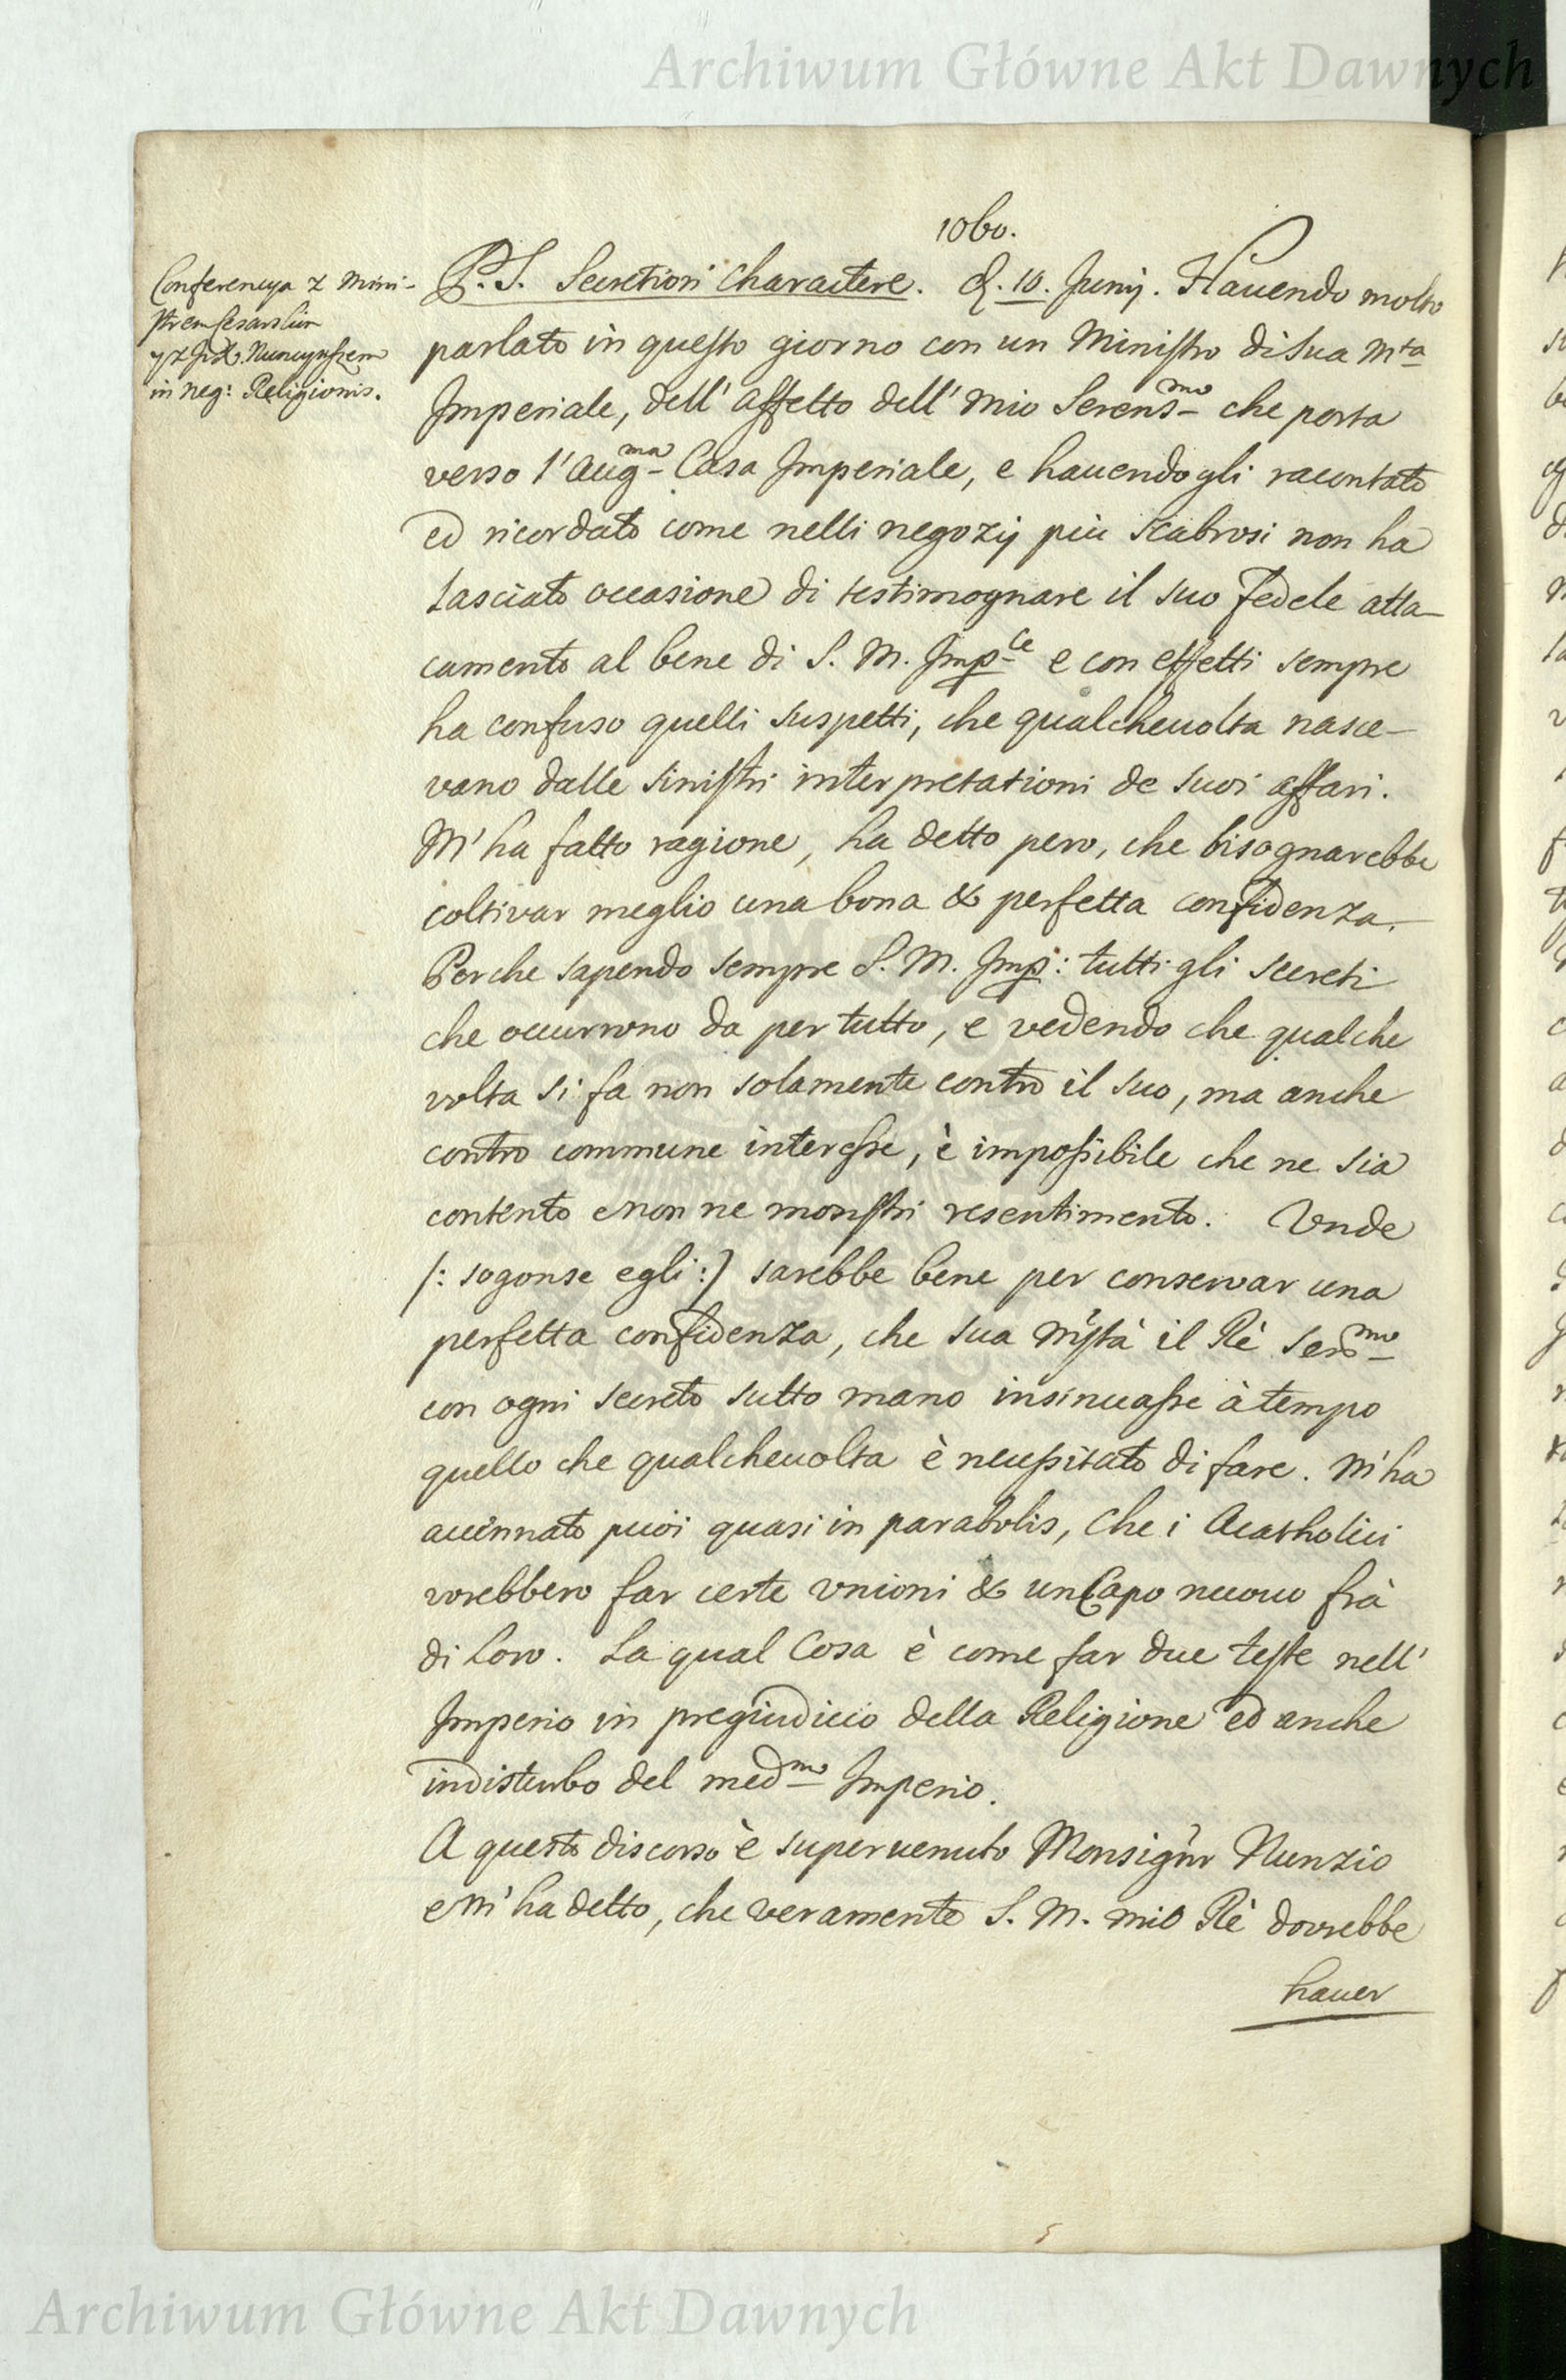 Archiwum Główne Akt Dawnych
1060.
Conferencya z Mini-
strem Cesarskim
y z Nuncyuszem
in neg: Religionis.
P. S. Secretiori Charactere. d. 10. Junij. Hauendo molto
parlato in questo giorno con un Ministro di Sua Mta
Imperiale, dell' affetto dell' mio Serensmo che porta
verso l'Augma Casa Imperiale, e hauendogli racontato
ed ricordato come nelli negozij più scabrosi non ha
lasciato occasione di testimognare il suo fedele atta-
camento al bene di S. M. Imple e con effetti sempre
ha confuso quelli suspetti, che qualcheuolta nasce-
vano dalle sinistri interpretationi de suoi affari.
M'ha fatto ragione, ha detto pero, che bisognarebbe
coltivar meglio una bona & perfetta confidenza.
Perche sapendo sempre S. M. Imp: tutti gli secreti
che occurrono da per tutto, e vedendo che qualche
volta si fa non solamente contro il suo, ma anche
contro commune interesse, è impossibile che ne sia
contento e non ne monstri resentimento. Unde
/: sogonse egli :/ sarebbe bene per conservar una
perfetta confidenza, che sua Mstà il Rè Sermo
con ogni secreto sutto mano insinuasse à tempo
quello che qualcheuolta è necessitato di fare. M'ha
accinnato puoi quasi in parabolis, che i Acatholici
vorebbero far certe unioni & un Capo nuouo frà
di loro. La qual Cosa è come far due teste nell'
Imperio in pregiudicio della Religione ed anche
indisturbo del medmo Imperio.
A questo discorso è supervenuto Monsignr Nunzio
e m'ha detto, che veramente S. M. mio Rè dovrebbe
hauer
Archiwum Główne Akt Dawnych